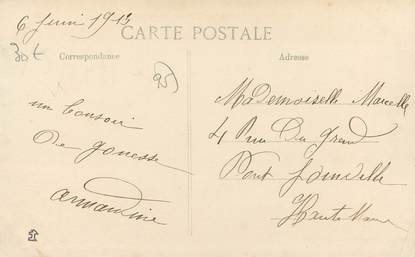 6 Juin 1913
CARTE POSTALE
30€
Correspondance
Adresse
95
un bonsoir
De gonesse
armandine
Mademoiselle Marcelle
4 Rue Du grand
Pont Joinville
Haute Marne